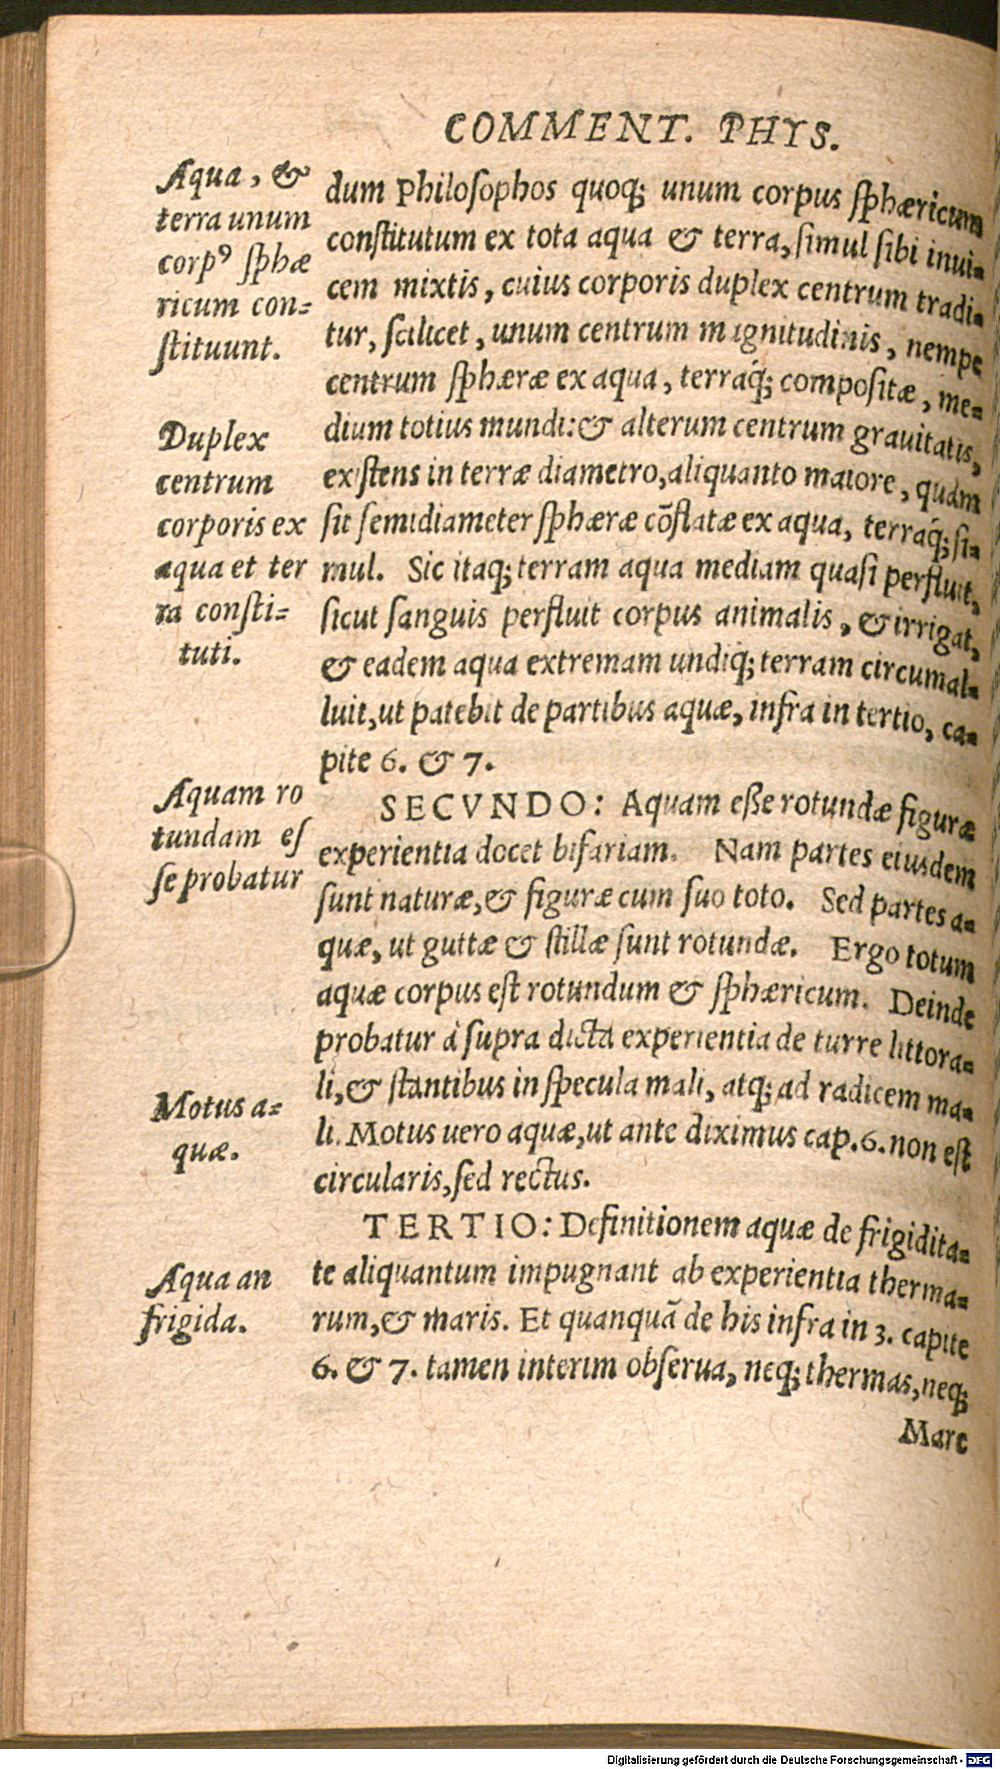 COMMENT. PHYS.
Aqua, &
terra unum
corpꝰ sphæ
ricum con-
stituunt.
Duplex
centrum
corporis ex
aqua et ter
ra consti-
tuti.
Aquam ro
tundam es
se probatur
Motus a-
quæ.
Aqua an
frigida.
dum Philosophos quoq; unum corpus sphæricum
constitutum ex tota aqua & terra, simul sibi inui-
cem mixtis, cuius corporis duplex centrum tradi-
tur, scilicet, unum centrum magnitudinis, nempe
centrum sphæræ ex aqua, terraq́; compositæ, me-
dium totius mundi: & alterum centrum grauitatis,
existens in terræ diametro, aliquanto maiore, quàm
sit semidiameter sphæræ cõflatæ ex aqua, terraq́; si-
mul. Sic itaq; terram aqua mediam quasi perfluit,
sicut sanguis perfluit corpus animalis, & irrigat,
& eadem aqua extremam undiq́; terram circumal-
luit, ut patebit de partibus aquæ, infra in tertio, ca-
pite 6. & 7.
SECVNDO: Aquam eße rotundæ figuræ
experientia docet bifariam. Nam partes eiusdem
sunt naturæ, & figuræ cum suo toto. Sed partes a-
quæ, ut guttæ & stillæ sunt rotundæ. Ergo totum
aquæ corpus est rotundum & sphæricum. Deinde
probatur à supra dicta experientia de turre littora-
li, & stantibus in specula mali, atq; ad radicem ma-
li. Motus uero aquæ, ut ante diximus cap. 6. non est
circularis, sed rectus.
TERTIO: Definitionem aquæ de frigidita-
te aliquantum impugnant ab experientia therma-
rum, & maris. Et quanquã de his infra in 3. capite
6. & 7. tamen interim obserua, neq; thermas, neq;
Mare
Digitalisierung gefördert durch die Deutsche Forschungsgemeinschaft - DFG